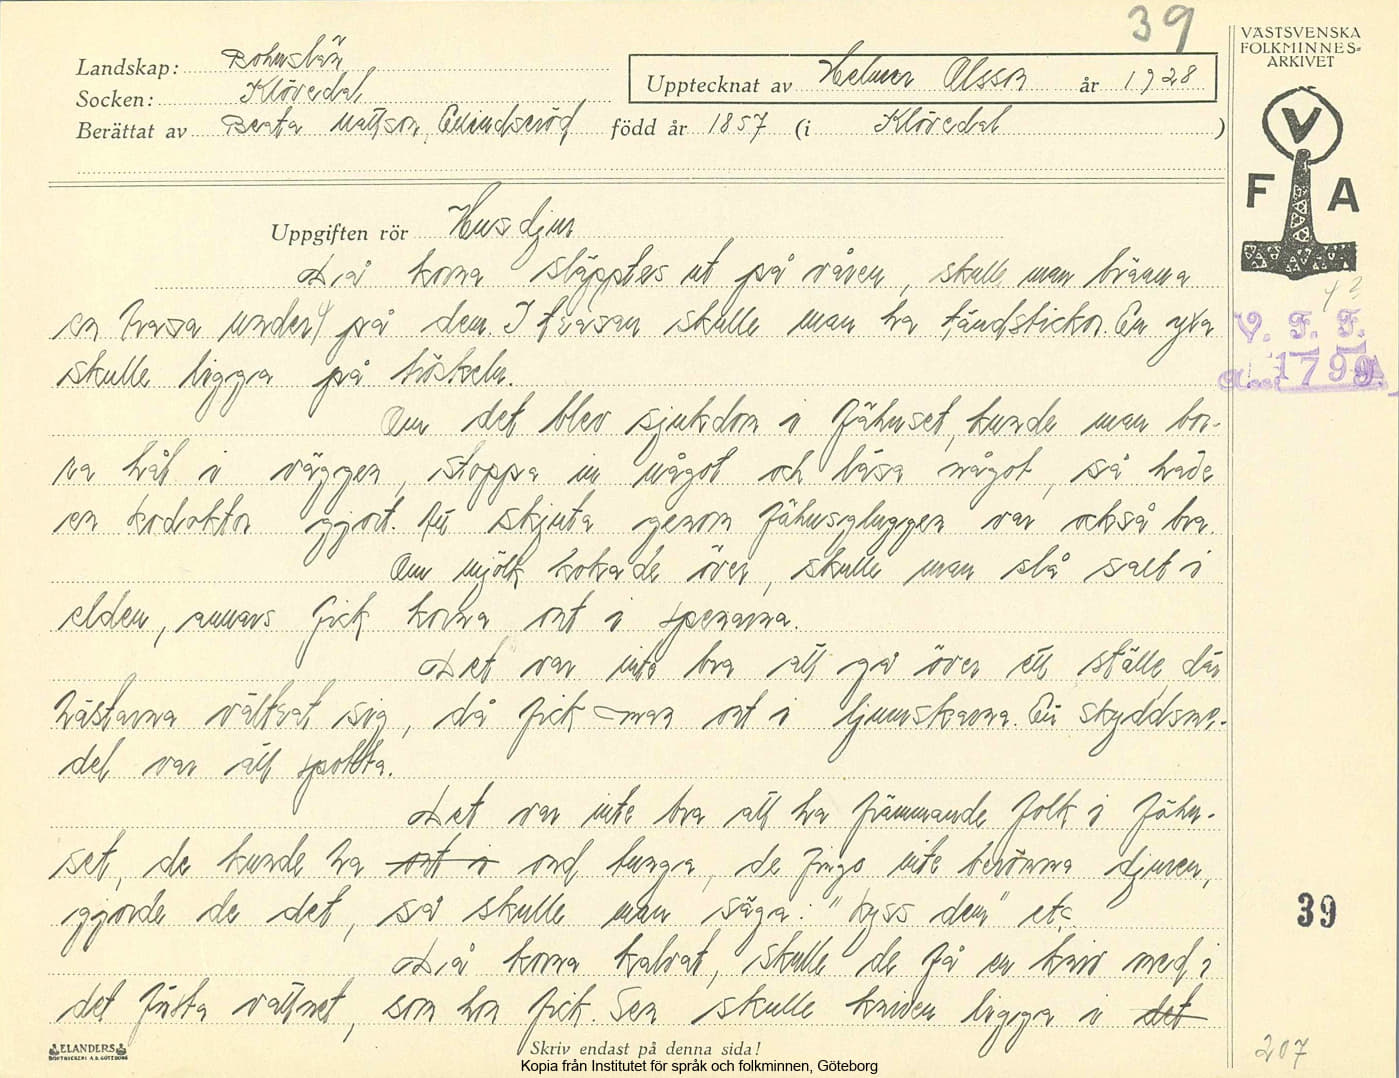 39
VÄSTSVENSKA
FOLKMINNES-
ARKIVET
Landskap: Bohuslän
Socken: Klövedal
Upptecknat av Helmer Olsson år 1928
Berättat av Beata Mattson, född år 1857 (i Klövedal)
V
F A
Uppgiften rör Husdjur
Då korna släpptes ut på våren, skulle man bränna
en trasa under på dem. I trasan skulle man ha tändstickor. En yxa
skulle ligga på tröskeln.
V. F. F.
1799
Om det blev sjukdom i fähuset, kunde man bor-
ra hål i väggen, stoppa in något och läsa något, så hade
en kodoktor gjort. Att skjuta genom fähusgluggen var också bra.
Om mjölk kokade över, skulle man slå salt i
elden, annars fick korna ont i spenarna.
Det var inte bra att gå över ett ställe där
hästarna vältrat sig, då fick man ont i ljumskarna. Ett skyddsme-
del var att spotta.
Det var inte bra att ha främmande folk i fähu-
set, de kunde ha ont i ond tunga, de fingo inte berömma djuren,
gjorde de det, så skulle man säga: "kyss dem" etc
39
Då korna kalvat, skulle de få en kniv med i
det första vattnet, som hon fick. Sen skulle kniven ligga i det
ELANDERS
BOKTRYCKERI A.B. GÖTEBORG
Skriv endast på denna sida!
207
Kopia från Institutet för språk och folkminnen, Göteborg